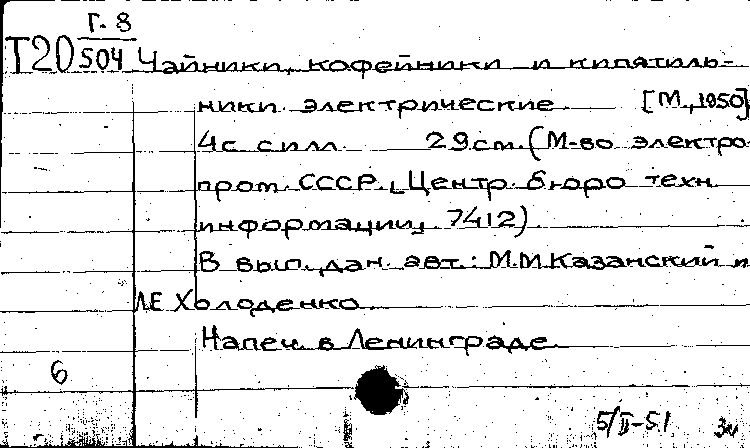 Г. 8
Т20 504 Чайники, кофейники и кипятиль-
ники электрические. [М., 1950]
4с. с илл. 29см. (М-во электро
пром. СССР. Центр. бюро техн.
информации, 7412)
В вып. дан. авт.: М.М.Казанский и
Л.Е.Холоденко.
Напеч. в Ленинграде.
6
5/II-51